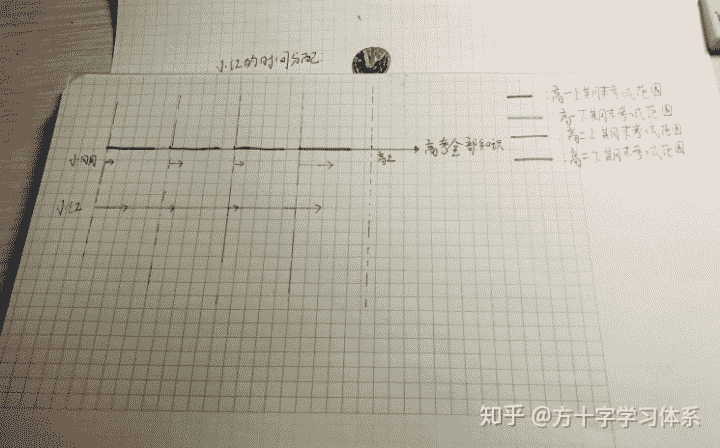 小红的时间分配
:高一上期末考试范围
:高一下期末考试范围
:高二上期末考试范围
:高二下期末考试范围
高考全部知识
小明
高三
小红
知乎 @方十字学习体系